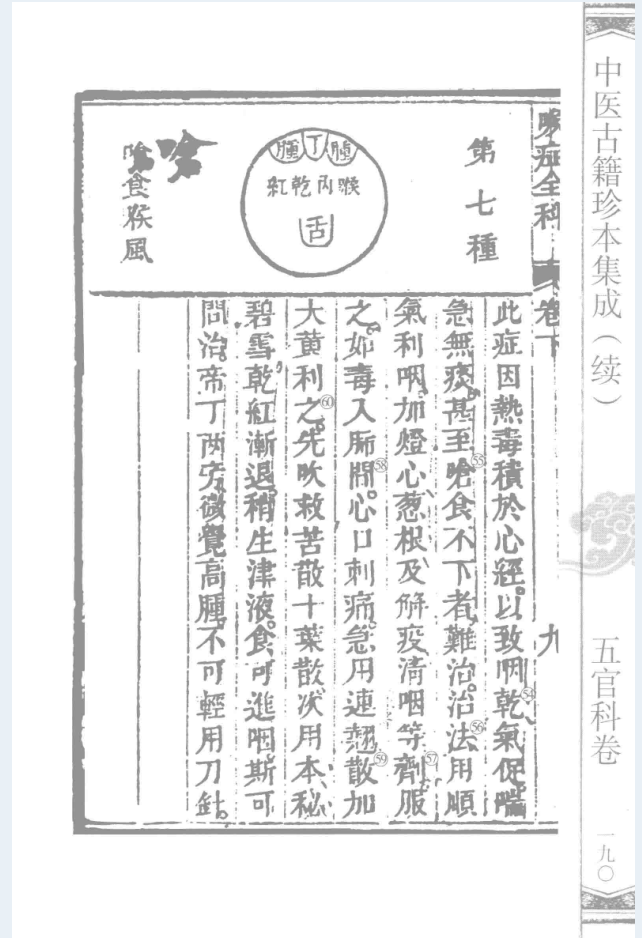 中医古籍珍本集成（续）
五官科卷
一九〇
喉症全科
卷下
九
第七種
腫丁腫
喉內乾紅
舌
嗆
嗆食猴風
此症因熱毒積於心經。以致咽乾㊴、氣促喘
急無痰。甚至㊵嗆食不下者難治。治㊶法用順
氣利咽。加燈心、葱根、及解疫清咽等㊷劑服
之。如毒入肺間㊸。心口刺痛。急用連翹㊹散加
大黄利之㊺。先吹救苦散十葉散。次用本、秘
碧雪。乾紅漸退。稍生津液。食可進咽。斯可
問治。帝丁兩旁微覺高腫。不可輕用刀針。